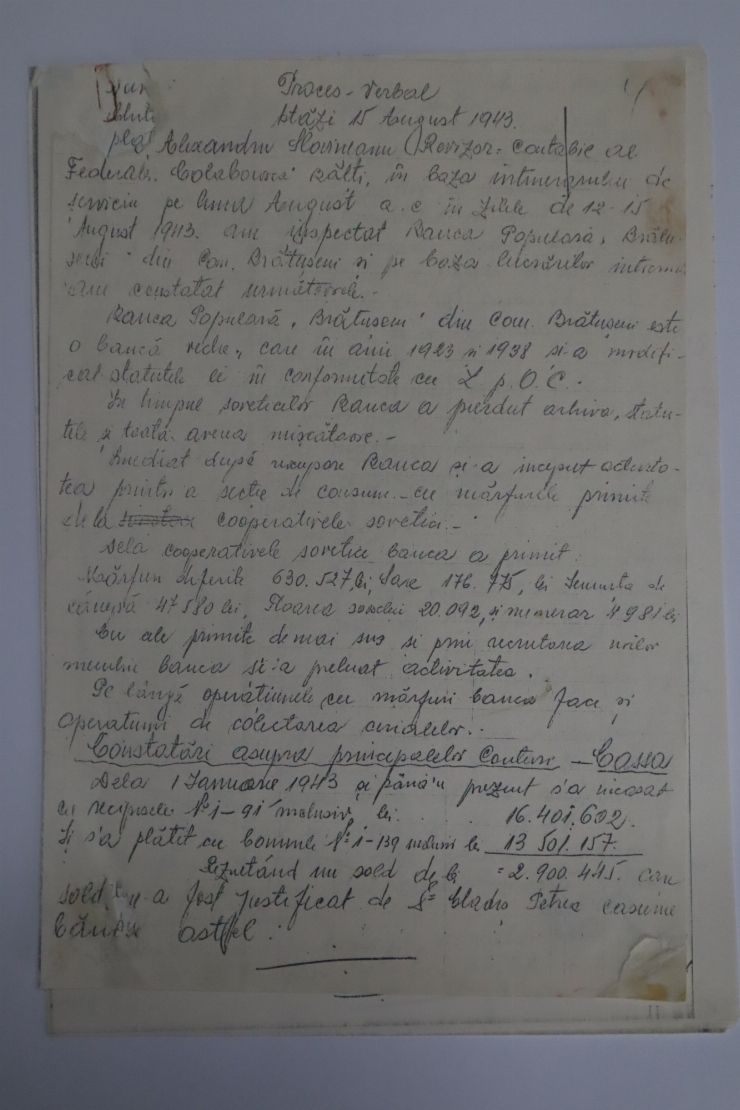 Proces-Verbal
Stăzi 15 August 1943.
Alexandru Revizor-Contabil al
Federalei Bălți, în baza itinerarului de
serviciu pe luna August a.c în zilele de 12-15
August 1943. am inspectat Banca Populară „Brătu-
seni" din Com. Brătușeni și pe baza lucrărilor
am constatat următoarele.-
Banca Populară „Brătuseni" din Com. Brătuseni este
o bancă veche, care în anii 1923 și 1938 si-a modifi-
cat statutele ei în conformitate cu L.p.O.C.-
În timpul sovieticilor Banca a pierdut arhiva, statu-
tele și toată averea mișcătoare.-
Imediat după Banca și-a început activita-
tea printr'o secție de consum - cu mărfurile primite
de la cooperativele sovietice.-
Dela cooperativele sovietice banca a primit:
Mărfuri diferite 630.527 lei, 176.775, lei Semința de
cânepă 47580 lei, Floarea soarelui 20.092, și numerar 4981 lei
Cu ale primite de mai sus si prin recrutarea noilor
membri banca si-a preluat activitatea.
Pe lângă operațiunele cu mărfuri banca face și
operațiuni de colectarea cerialelor..
Constatări asupra principalelor Conturi - Cassa
Dela 1 Ianuarie 1943 și până'n prezent s'a incasat
cu recipisele № 1-91 inclusiv lei . . . 16.401.602.
Și s'a plătit cu bonurile № 1-139 inclusiv lei 13 501.157.
Rezultând un sold de lei = 2.900.445. care
sold a fost justificat de Petrea casierul
băncii astfel: